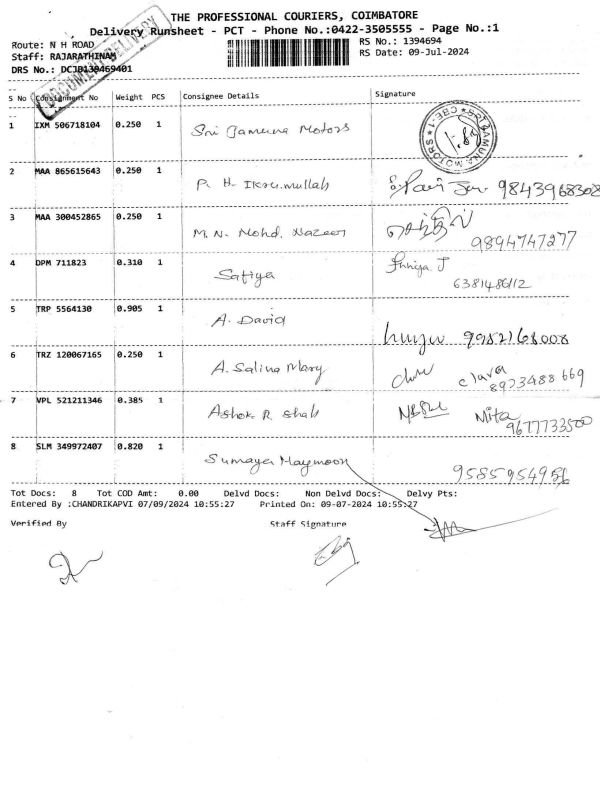 THE PROFESSIONAL COURIERS, COIMBATORE
Delivery Runsheet - PCT - Phone No.:0422-3505555 - Page No.:1
Route: N H ROAD
RS No.: 1394694
Staff: RAJARATHINAM
RS Date: 09-Jul-2024
DRS No.: DCJB139469401
DOCUMENT DELIVERY
S No Consignment No Weight PCS Consignee Details Signature
1 IXM 506718104 0.250 1 Sri Jamuna Motors
SRI JAMUNA MOTORS CBE-1
2 MAA 865615643 0.250 1 P. H. Ikramullah 9843968308
3 MAA 300452865 0.250 1 M. N. Mohd. Nazeer செந்தில்
9894747277
4 DPM 711823 0.310 1 Safiya J
6381486112
5 TRP 5564130 0.905 1 A. David 9982168008
6 TRZ 120067165 0.250 1 A. Salina Mary clara
8973488669
7 VPL 521211346 0.385 1 Ashok R. Shah Nita
9677733500
8 SLM 349972407 0.820 1 Sumaya Maymoon
9585954956
Tot Docs: 8 Tot COD Amt: 0.00 Delvd Docs: Non Delvd Docs: Delvy Pts:
Entered By :CHANDRIKAPVI 07/09/2024 10:55:27 Printed On: 09-07-2024 10:55:27
Verified By Staff Signature